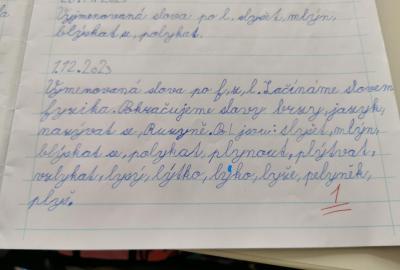 Vyjmenovaná slova po l. slyšet, mlýn,
blýskat se, polykat.
1.12.2023
Vyjmenovaná slova po f, z, l. Začínáme slovem
fyzika. Pokračujeme slovy brzy, jazyk,
nazývat se, Ruzyně. Po l jsou: slyšet, mlýn,
blýskat se, polykat, plynout, plýtvat,
vzlykat, lysý, lýtko, lýko, lyže, pelyněk,
plyš.
1